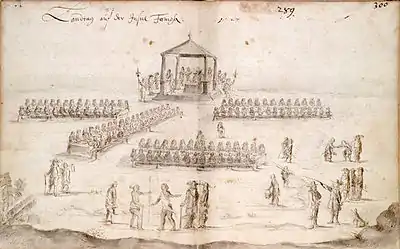 Landtag auf der Insul
289
300